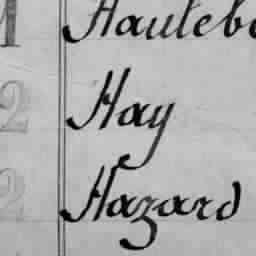 1 Hauteb
2 Hay
2 Hazard